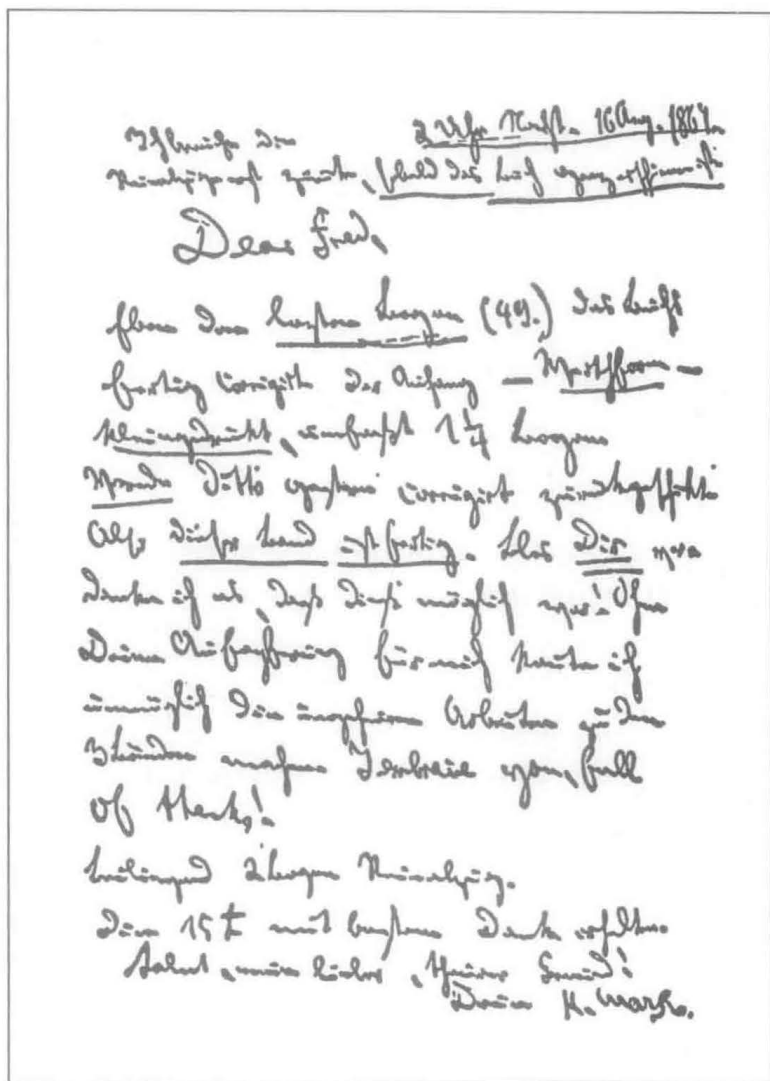 Ich brauche die 2 Uhr Nacht. 16 Aug. 1867.
Reinabzüge erst zurück, sobald das Buch ganz erschienen ist.
Dear Fred,
Eben den letzten Bogen (49.) des Buchs
fertig corrigirt. Der Anhang — Werthform —
kleingedruckt, umfaßt 1 1/4 Bogen.
Vorrede ditto gestern corrigirt zurückgeschickt.
Also dieser Band ist fertig. Blos Dir ver
danke ich es, daß dieß möglich war! Ohne
Deine Aufopferung für mich konnte ich
unmöglich die ungeheuren Arbeiten zu den
3 Bänden machen. I embrace you, full
of thanks!
Beiliegend 2 Bogen Reinabzug.
Die 15 £ mit bestem Dank erhalten.
Salut, mein lieber, theurer Freund!
Dein K. Marx.